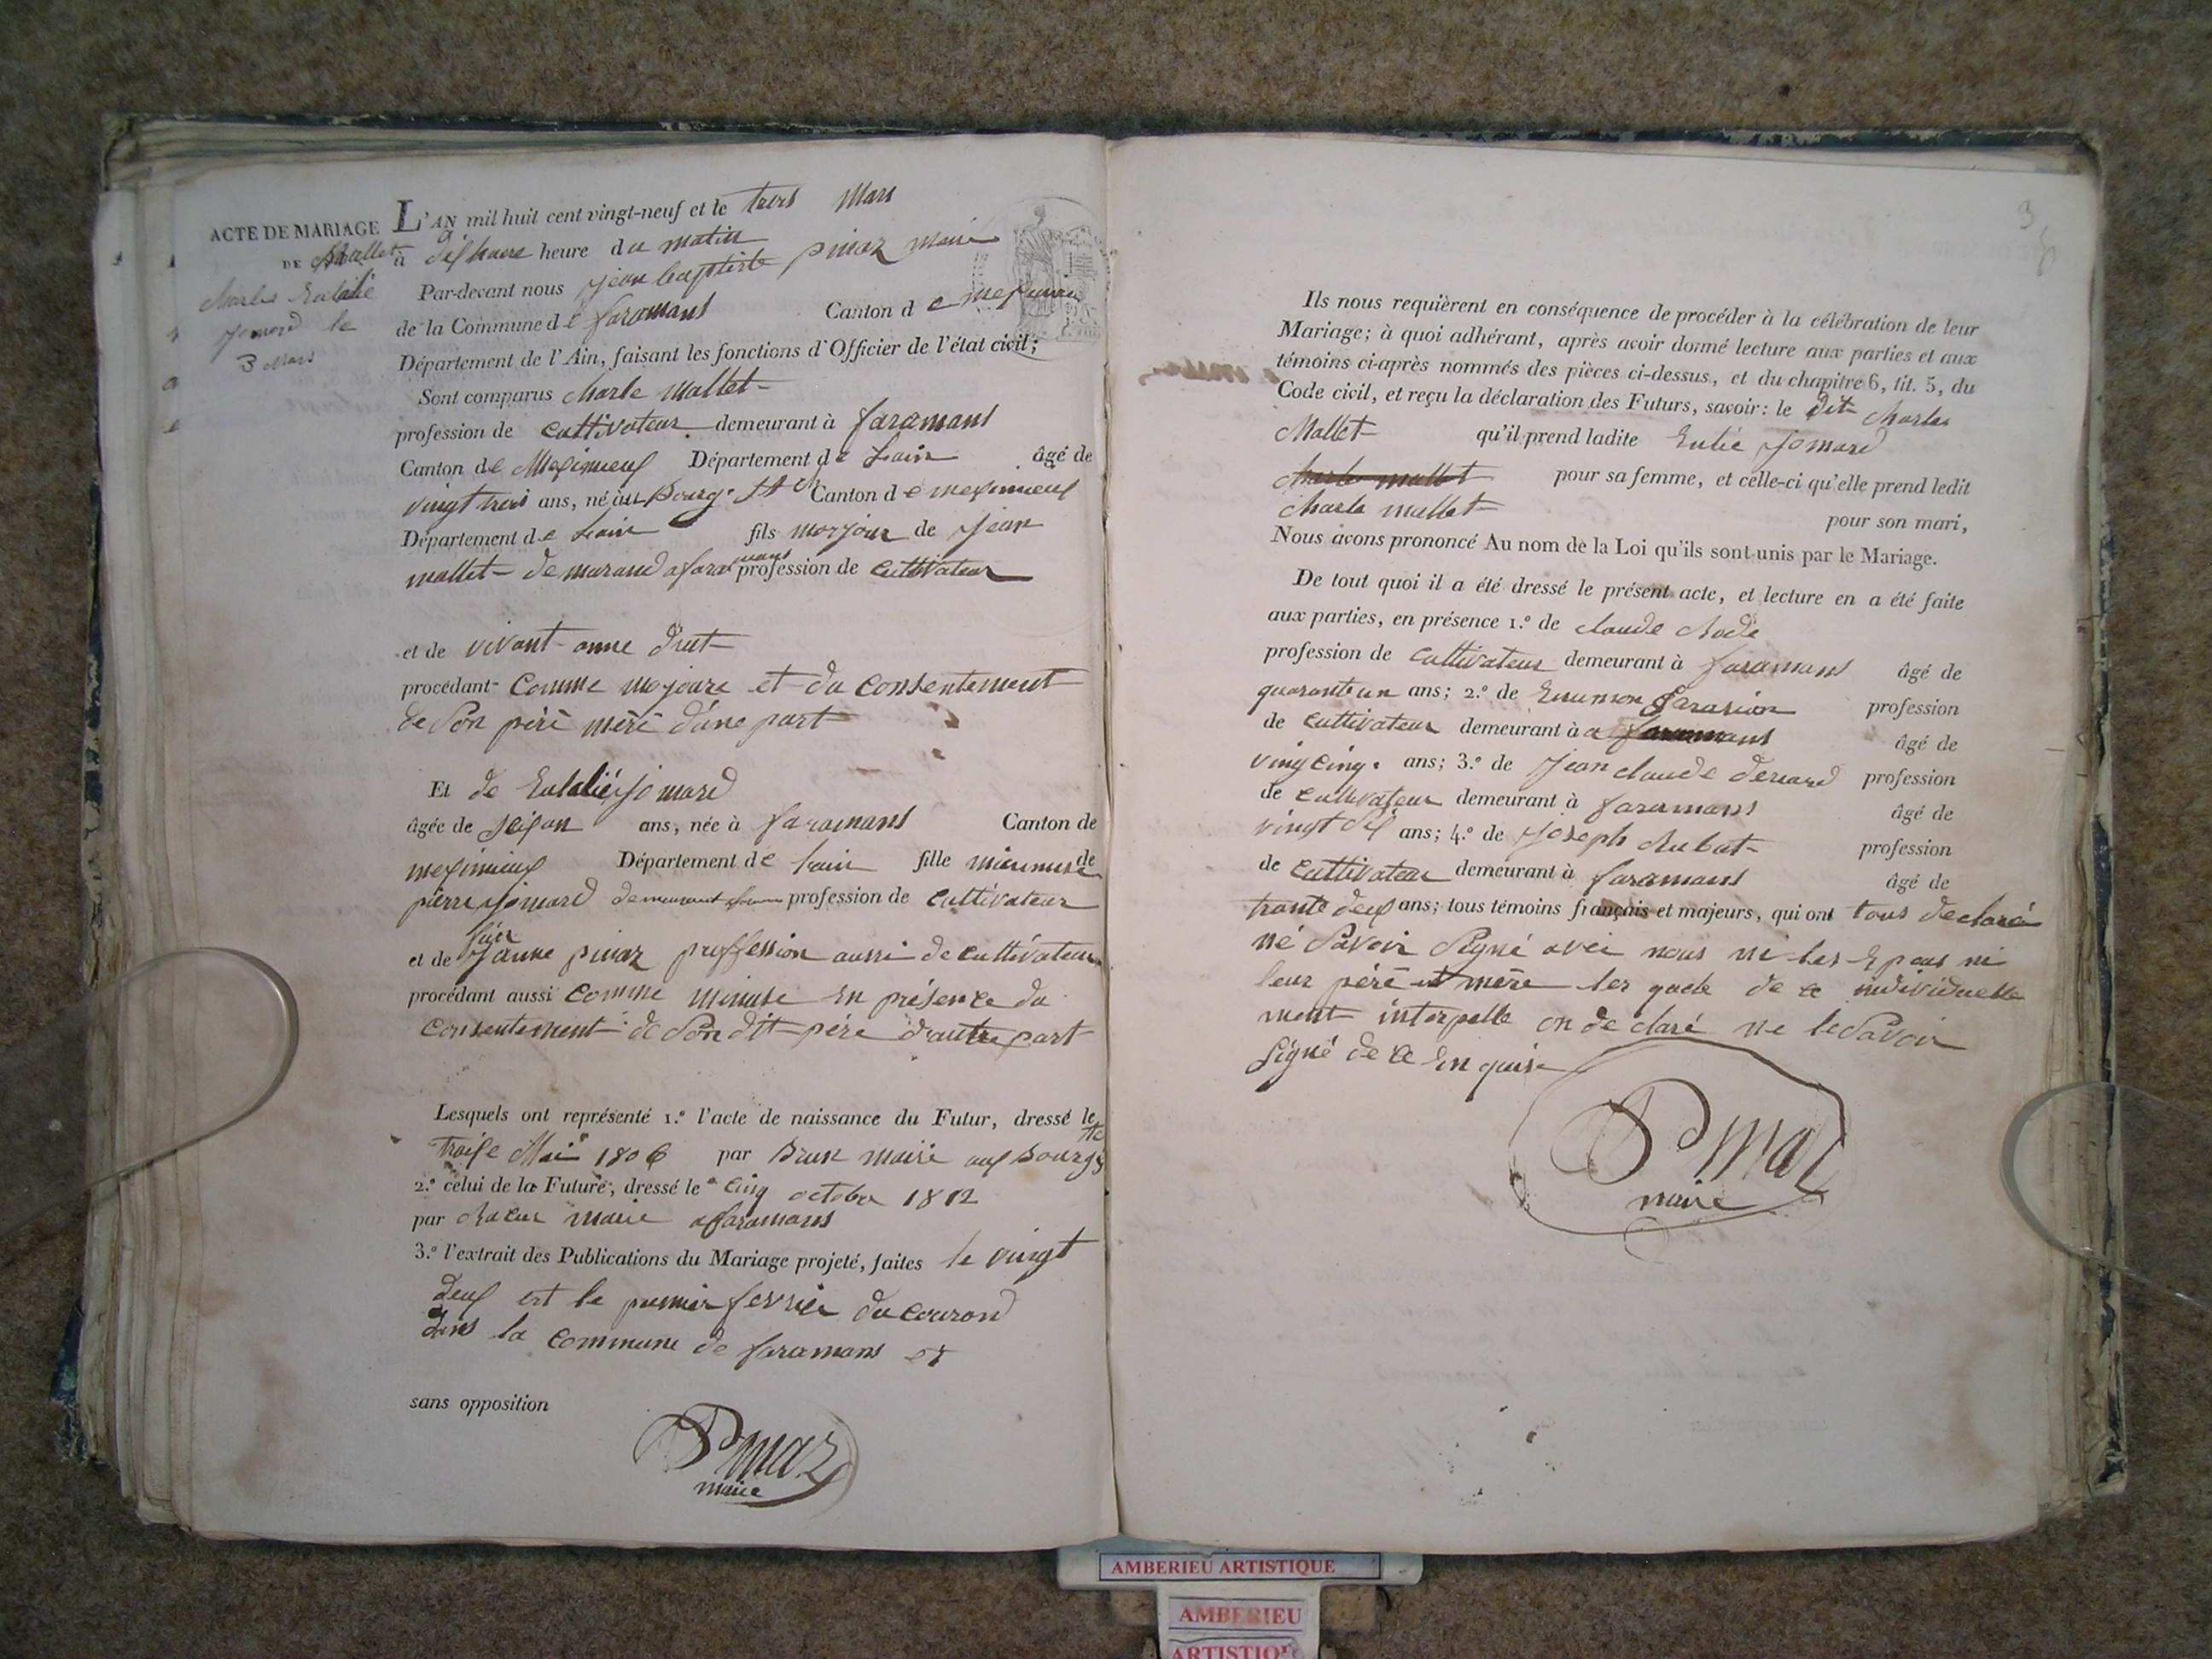 ACTE DE MARIAGE
DE Mallet
Charles Eulalie
Jomard le
3 Mars
L'AN mil huit cent vingt-neuf et le trois Mars
à dix heure du matin
Par-devant nous jean baptiste pinaz maire
de la Commune de faramans Canton de meximieux
Département de l'Ain, faisant les fonctions d'Officier de l'état civil;
Sont comparus Charle Mallet
profession de cultivateur demeurant à faramans
Canton de Meximieux Département de Lain âgé de
vingt trois ans, né au Bourg St Ch Canton de meximieux
Département de Lain fils morjour de Jean
mallet demurand a faramans profession de cultivateur
et de vivant anne drut
procédant Comme mojoure et du consentement
de son père mère d'une part
Et de Eulalié jomard
âgée de seison ans, née à faramans Canton de
meximieux Département de Lain fille mienuse de
pierre jomard demeurant profession de cultivateur
et de füer janne pinaz proffession aussi de cultivateur
procédant aussi comme minuse en présence du
consentement de son dit père d'autre part
Lesquels ont représenté 1.º l'acte de naissance du Futur, dressé le
traise Mai 1806 par Brun maire aux Bourg St
2.º celui de la Future, dressé le cinq octobre 1812
par maire a faramans
3.º l'extrait des Publications du Mariage projeté, faites le vingt
deux et le premier fevrier du courond
dans la commune de faramans et
sans opposition
Pinaz
maire
3
Ils nous requièrent en conséquence de procéder à la célébration de leur
Mariage; à quoi adhérant, après avoir donné lecture aux parties et aux
témoins ci-après nommés des pièces ci-dessus, et du chapitre 6, tit. 5, du
Code civil, et reçu la déclaration des Futurs, savoir: le dit Charles
Mallet qu'il prend ladite Eulié Jomard
Charle mallet pour sa femme, et celle-ci qu'elle prend ledit
Charle mallet pour son mari,
Nous avons prononcé Au nom de la Loi qu'ils sont unis par le Mariage.
De tout quoi il a été dressé le présent acte, et lecture en a été faite
aux parties, en présence 1.º de claude
profession de cultivateur demeurant à faramans âgé de
quarante un ans; 2.º de profession
de cultivateur demeurant à a faramans âgé de
ving cinq ans; 3.º de jean claude profession
de cultivateur demeurant à faramans âgé de
vingt six ans; 4.º de joseph profession
de cultivateur demeurant à faramans âgé de
trante deux ans; tous témoins français et majeurs, qui ont tous declaré
né savoir signé avec nous ni les Epous ni
leur péré et mère les quele de ce individuelle
ment interpelle on de claré ne le savoir
signé de ce enquise
Pinaz
maire
AMBERIEU ARTISTIQUE
AMBERIEU
ARTISTIQUE